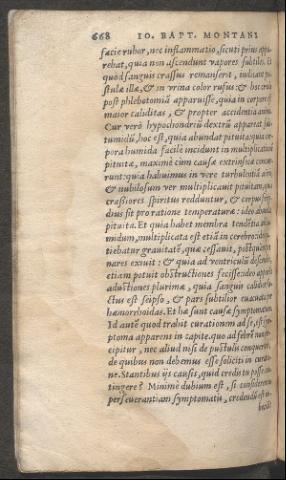 668 IO. BAPT. MONTANI
facie rubor, nec inflammatio, sicuti prius appa
rebat, quia non ascendunt vapores subtiles. Et
quòd sanguis crassus remanserit, indicant pu
stulæ illæ, & in vrina color rufus: & hoc
post phlebotomiã apparuisse, quia in corpore
maior caliditas, & propter accidentia animi.
Cur verò hypochondriũ dextrũ appareat
tumidũ, hoc est, quia abundat pituita: quia cor
pora humida facile incidunt in multiplicationẽ
pituitæ, maximè cùm causæ extrinsecæ
runt: quia habuimus in vere turbulentiã
& nubilosum ver multiplicauit pituitam, quia
crassiores spiritus redduntur, & corpus
dius fit pro ratione temperaturæ: ideo
pituita. Et quia habet membra
midum, multiplicata est etiã in cerebro:
tiebatur grauitatẽ, quæ cessauit, postquam per
nares exiuit: & quia ad ventriculũ
etiam potuit obstructiones fecisse:
adustiones plurimæ, quia sanguis calidus
ctus est seipso, & pars subtilior euacuata per
hæmorrhoidas. Et hæ sunt causæ symptomatum.
Id autẽ quod trahit curationem ad se, est sym
ptoma apparens in capite. quo ad
cipitur, nec aliud nisi de punctulis conqueritur,
de quibus non debemus esse soliciti in curatio
ne. Stantibus ijs causis, quid creditis posse con
tingere? Minimè dubium est, si consideremus
perseuerantiam symptomatũ, credendũ est